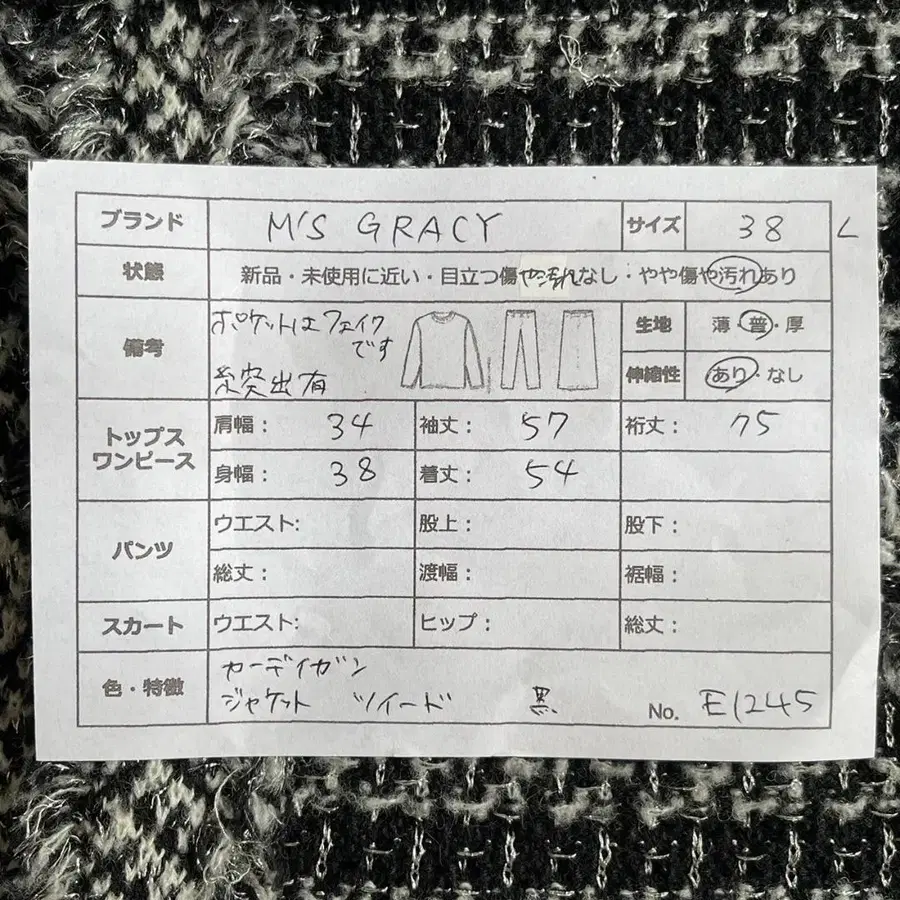 ブランド M'S GRACY サイズ 38 L
状態 新品・未使用に近い・目立つ傷や汚れなし・やや傷や汚れあり
備考 ポケットはフェイク
です
糸突出有
生地 薄・普・厚
伸縮性 あり・なし
トップス
ワンピース
肩幅: 34 袖丈: 57 裄丈: 75
身幅: 38 着丈: 54
パンツ
ウエスト: 股上: 股下:
総丈: 渡幅: 裾幅:
スカート ウエスト: ヒップ: 総丈:
色・特徴 カーディガン
ジャケット ツイード 黒 No. E1245